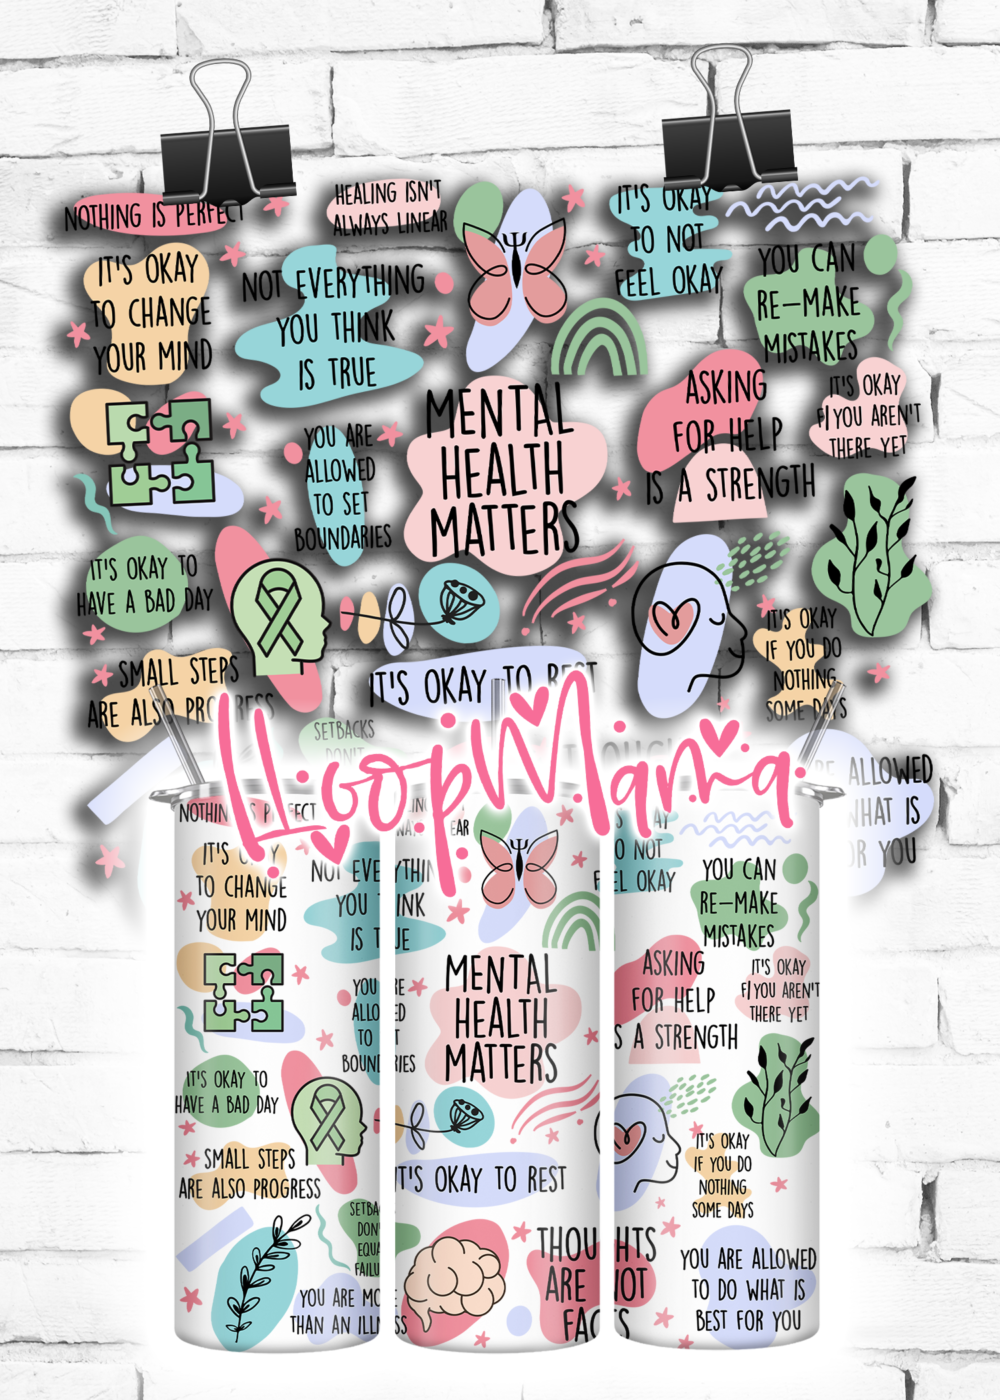 NOTHING IS PERFECT
HEALING ISN'T
ALWAYS LINEAR
IT'S OKAY
TO NOT
FEEL OKAY
IT'S OKAY
TO CHANGE
YOUR MIND
NOT EVERYTHING
YOU THINK
IS TRUE
YOU CAN
RE-MAKE
MISTAKES
MENTAL
HEALTH
MATTERS
ASKING
FOR HELP
IS A STRENGTH
IT'S OKAY
F/YOU AREN'T
THERE YET
YOU ARE
ALLOWED
TO SET
BOUNDARIES
IT'S OKAY TO
HAVE A BAD DAY
IT'S OKAY
IF YOU DO
NOTHING
SOME DAYS
SMALL STEPS
ARE ALSO PROGRESS
IT'S OKAY TO REST
SETBACKS
DON'T
THOUGH
ALLOWED
WHAT IS
OR YOU
LLoopMama
NOTHIN S PERFECT
EAR
O NOT
EL OKAY
IT'S O Y
TO CHANGE
YOUR MIND
NOT EVE YTHIN
YOU INK
IS T UE
YOU CAN
RE-MAKE
MISTAKES
MENTAL
HEALTH
MATTERS
ASKING
FOR HELP
S A STRENGTH
IT'S OKAY
F/YOU AREN'T
THERE YET
YOU RE
ALLO ED
TO T
BOUND RIES
IT'S OKAY TO
HAVE A BAD DAY
SMALL STEPS
ARE ALSO PROGRESS
IT'S OKAY TO REST
IT'S OKAY
IF YOU DO
NOTHING
SOME DAYS
SETBA
DON'
EQUA
FAILU
YOU ARE MO
THAN AN ILLN SS
THOU HTS
ARE NOT
FAC S
YOU ARE ALLOWED
TO DO WHAT IS
BEST FOR YOU